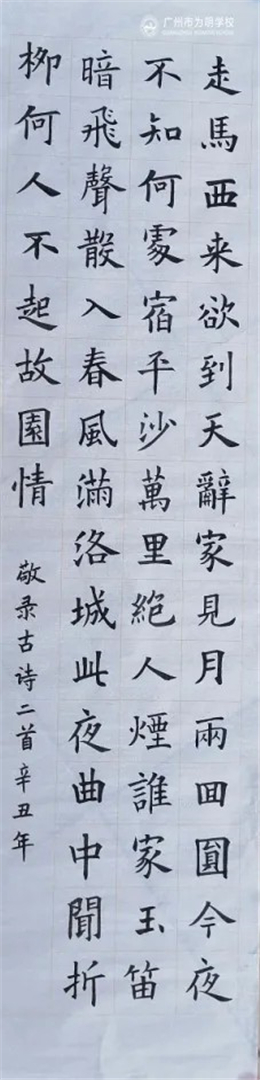 广州市为明学校
走馬西来欲到天辭家見月兩回圓今夜
不知何處宿平沙萬里絕人煙誰家玉笛
暗飛聲散入春風滿洛城此夜曲中聞折
柳何人不起故園情
敬录古诗二首辛丑年